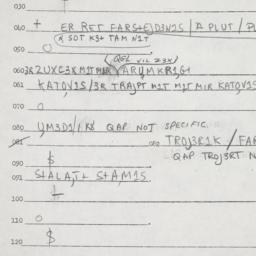 030
040 + ER RET FARS+E)D3N1S / A PLUT / PL
* SOT K3+ TAM N1T
050
QEL VIL Z3X
060 3R ZUXC3X M1T M3R ARUMKR1G+
061 KATOV1S/3R TRAJPT M1T M1T MIR KATOV1S
070 O
080 UM3D1/1 K8 QAP NOT SPECIFIC.
081 TROJ3R1K / FAR
QAP TROJ3RT N
090 $
091 S+ALA,T+ S+A,M1S
100
110 O
120 $